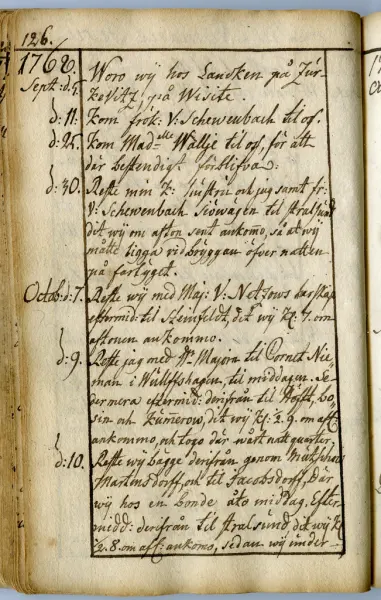 126.
1768.
Sept: d: 5. Woro wij hos Landken på Zür-
kevitz, på Wisite.
d: 11. Kom frök: V: Schewenbach til oss.
d: 25. Kom Mad:elle Wallje til oss, för att
där beständigt förblifva.
d: 30. Reste min K: hustru och jag samt fr:
V: Schewenbach Siövägen til Stralsund
dit wij om afton sent ankomo, så at wij
måtte ligga vid bryggan öfver natten
på fartyget.
Octob: d: 7. Reste wij med Maj: V: Netzows
eftermid: til Steinfeldt, dit wij Kl: 7. om
aftonen ankommo.
d: 9. Reste jag med Hr Majorn til Cornet Nie-
man i Wüllffshagen, til middagen. Se-
dermera eftermid: derifrån til
sin och Kümerow, dit wij Kl: ½ 9. om aft:
ankommo, och togo där wårt natt quarter,
d: 10. Reste wij bägge derifrån genom
Martensdorff, til Jacobsdorff, Där
wij hos en bonde åto middag. Efter-
midd: derifrån til Stralsund dit wij Kl
½ 8. om aft: ankomo, sedan wij under-